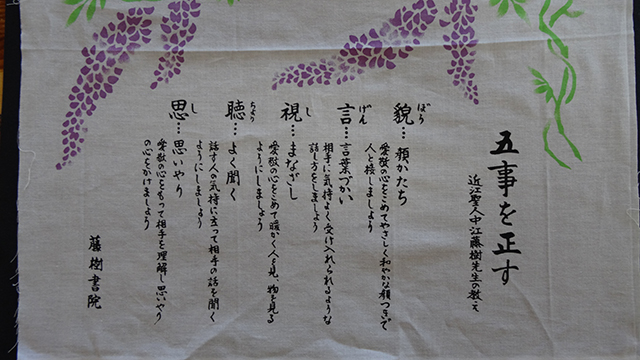 五事を正す
近江聖人中江藤樹先生の教え
貌…顔かたち
ぼう
愛敬の心をこめてやさしく和やかな顔つきで
人と接しましょう
言…言葉づかい
げん
相手に気持よく受け入れられるような
話し方をしましょう
視…まなざし
し
愛敬の心をこめて暖かく人を見、物を見る
ようにしましょう
聴…よく聞く
ちょう
話す人の気持に立って相手の話を聞く
ようにしましょう
思…思いやり
し
愛敬の心をもって相手を理解し思いやり
の心をかけましょう
藤樹書院